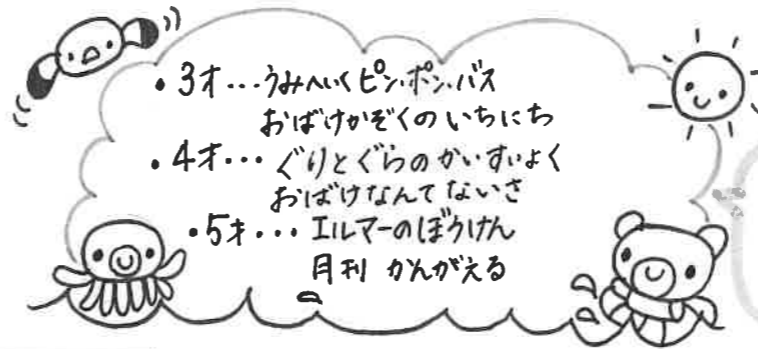 ・3才…うみへいくピン・ポン・バス
おばけかぞくのいちにち
・4才…ぐりとぐらのかいすいよく
おばけなんてないさ
・5才…エルマーのぼうけん
月刊 かんがえる